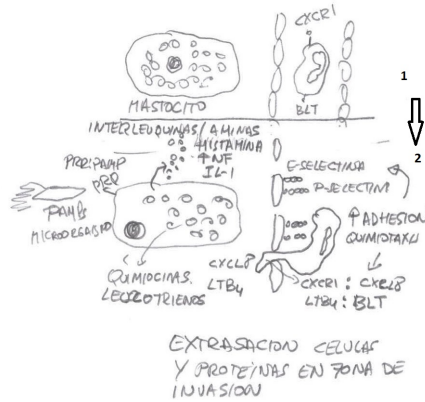 CXCR1
BLT
1
MASTOCITO
INTERLEUQUINAS / AMINAS
HISTAMINA
TNF
IL-1
2
PRR:PAMP
PRR
PAMPs
MICROORGANISMO
E-SELECTINSA
P-SELECTINA
↑ ADHESION
QUIMIOTAXIS
QUIMIOCINAS.
LEUCOTRIENOS
CXCL8
LTB4
CXCR1 : CXCL8
LTB4 : BLT
EXTRASACION CELULAS
Y PROTEINAS EN ZONA DE
INVASION